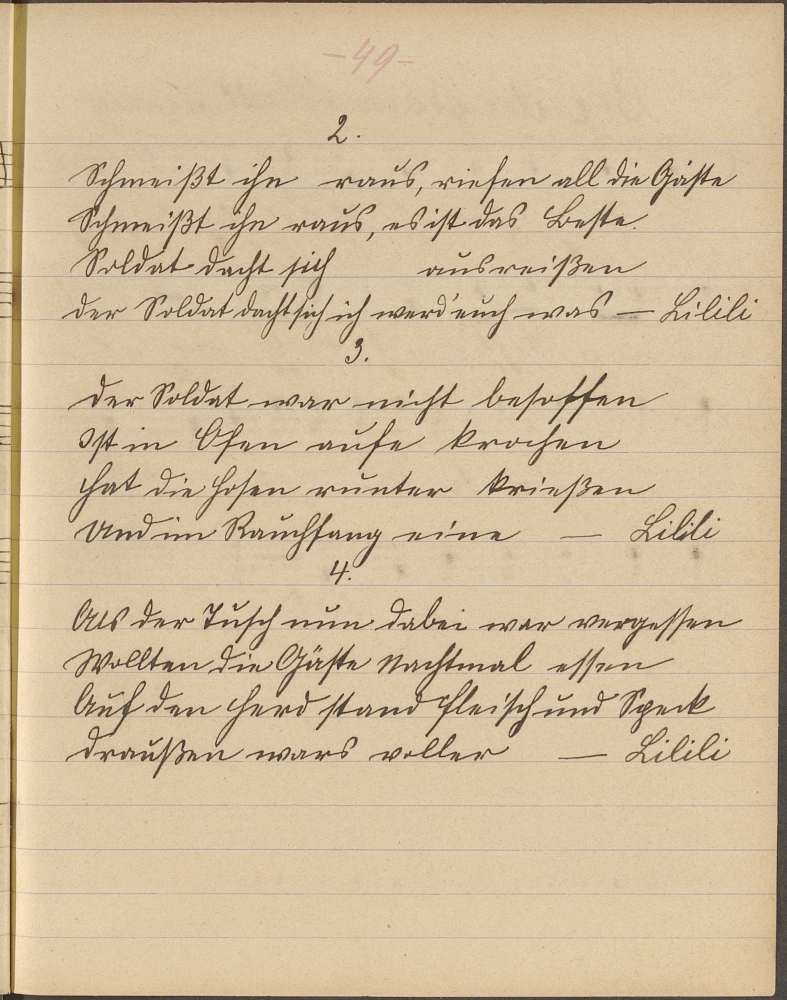 -49-
2.
Schmeißt ihn raus, riefen all die Gäste
Schmeißt ihn raus, es ist das Beste.
Soldat dacht sich ausreißen
der Soldat dacht sich ich werd' euch was — Lilili
3.
Der Soldat war nicht besoffen
Ist in Ofen aufe krochen
hat die Hosen runter krießen
Und im Rauchfang eine — Lilili
4.
Als der Tusch nun dabei war vergessen
Wollten die Gäste Nachtmal essen
Auf den Herd stand Fleisch und Speck
Draußen wars voller — Lilili